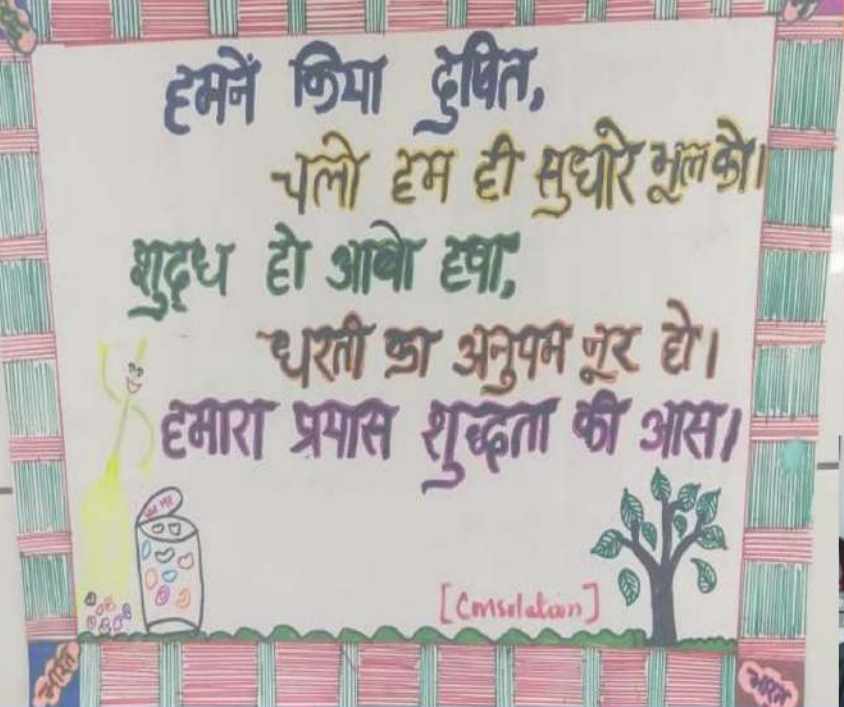 हमनें किया दुषित,
चलो हम ही सुधारे भूल को।
शुद्ध हो आबो हवा,
धरती का अनुपम नूर हो।
हमारा प्रयास शुद्धता की आस।
USE ME
[Consolation]
भारत
भारत